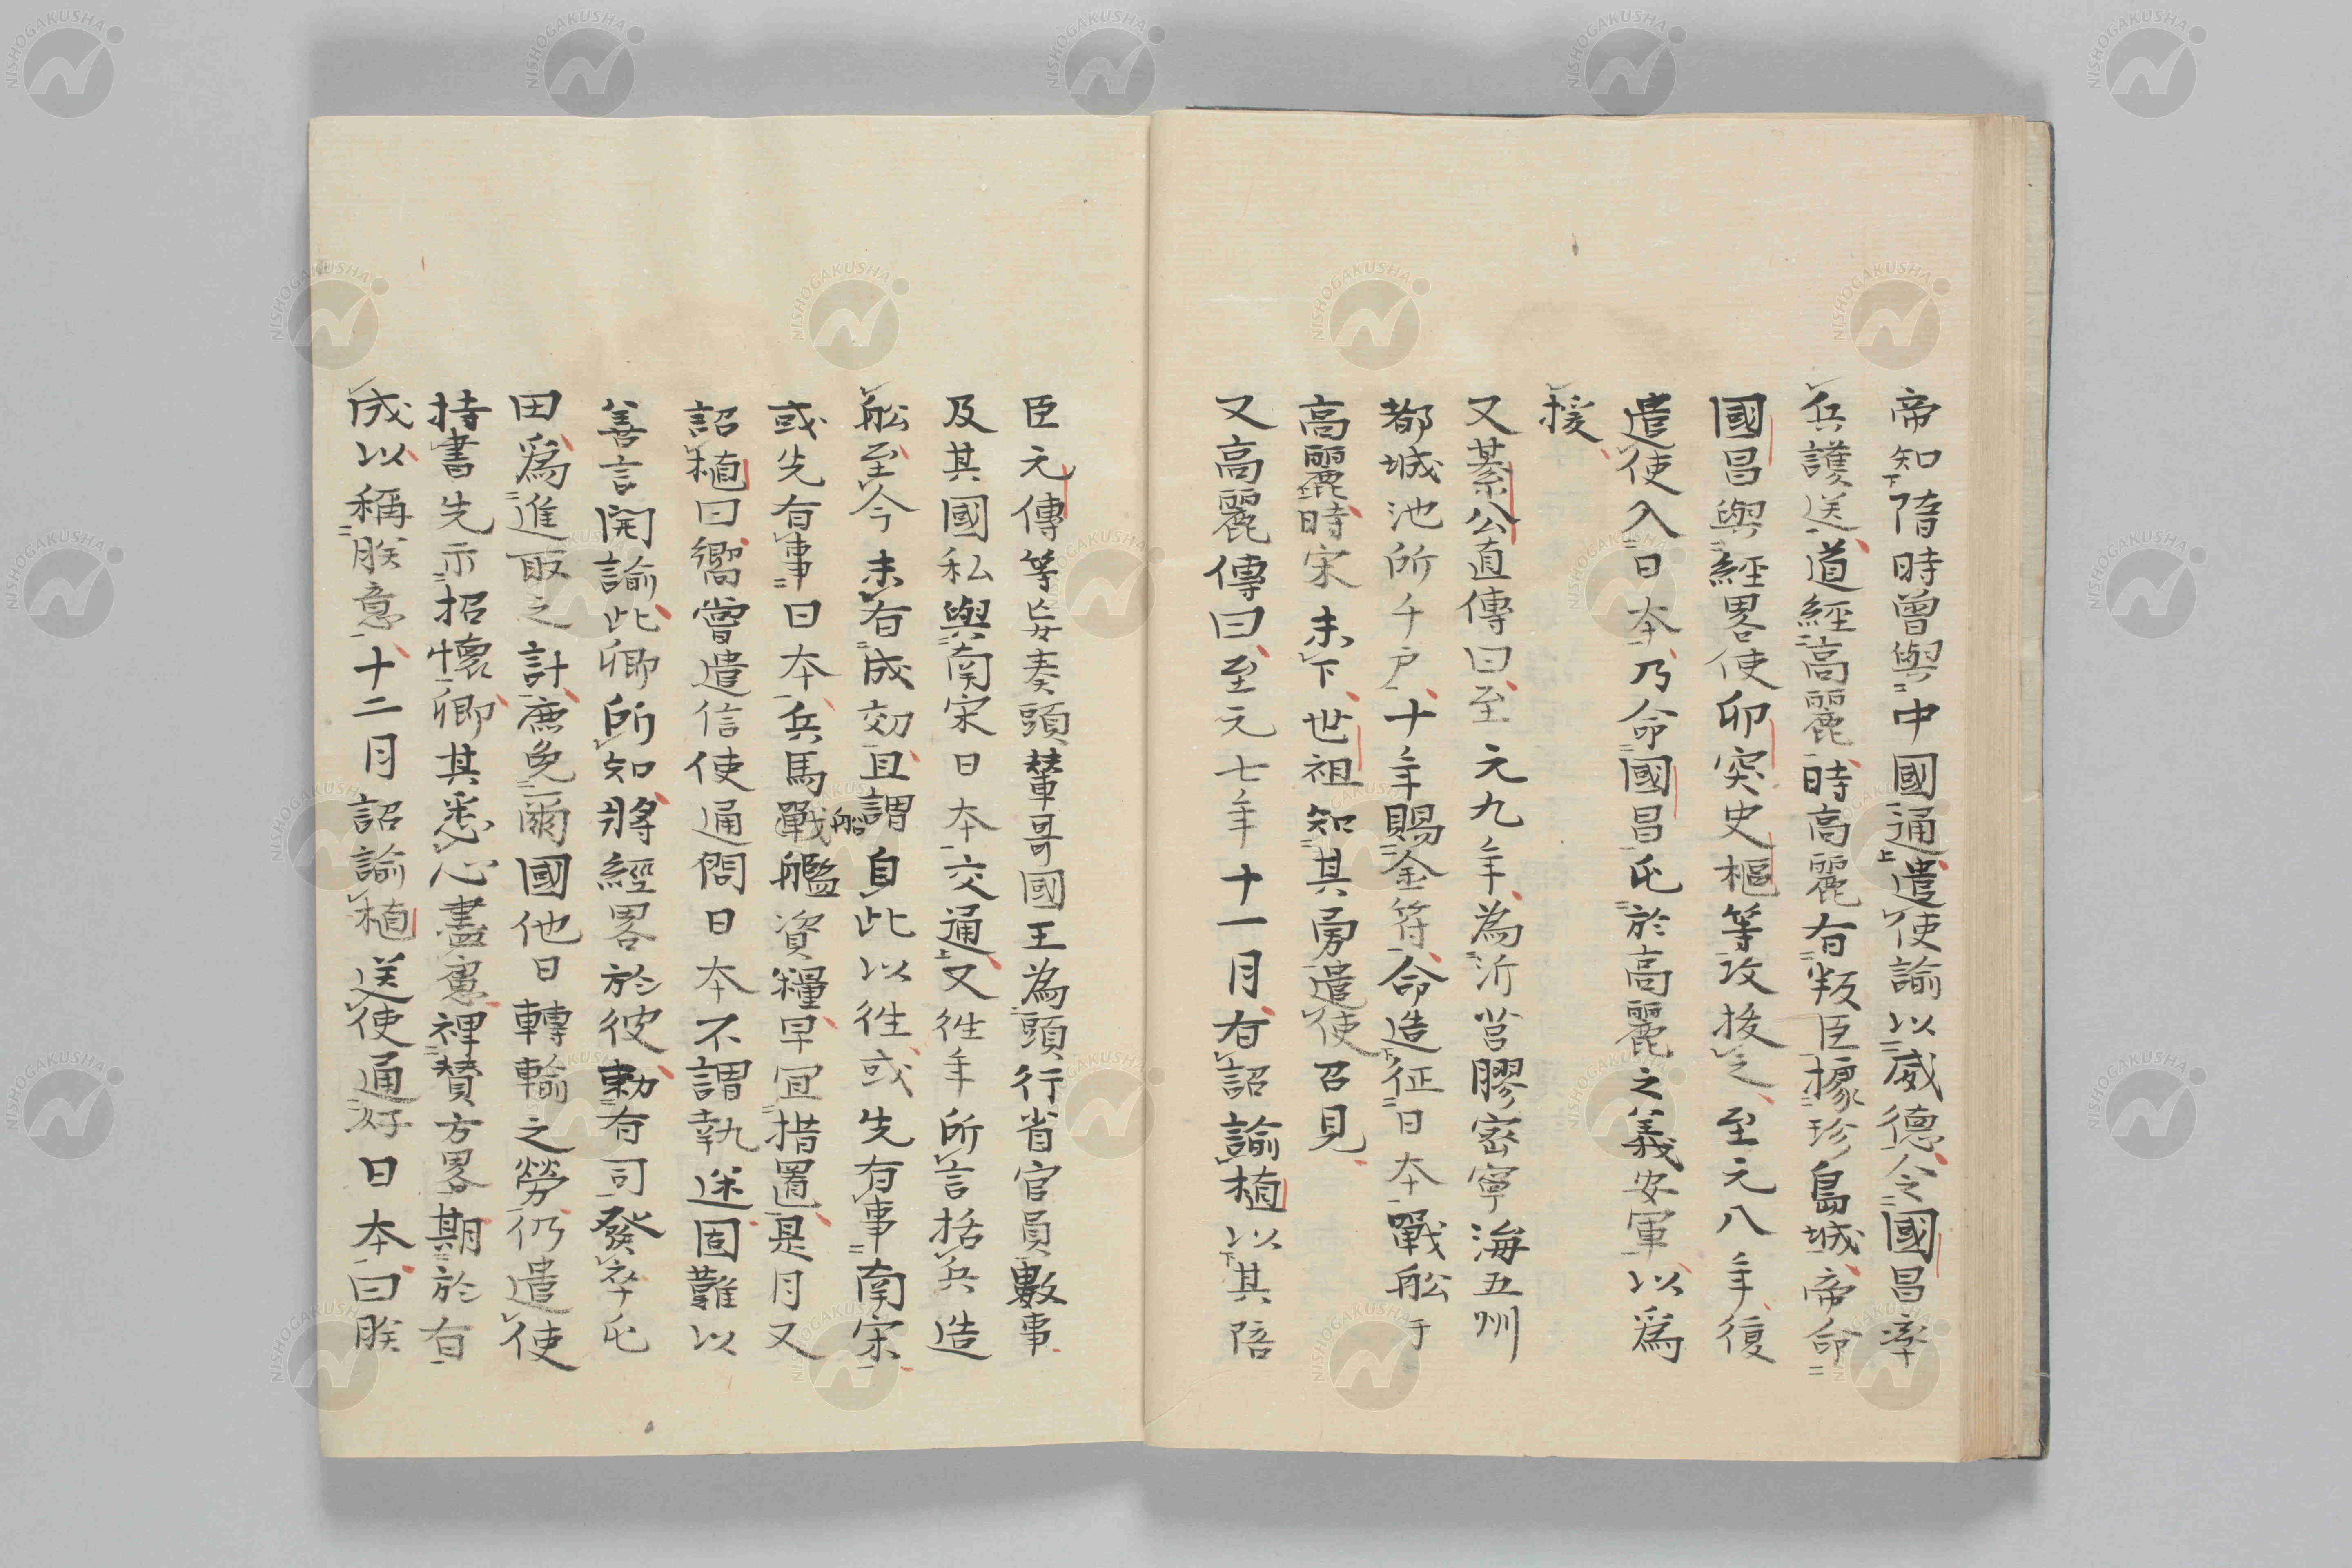 帝知隋時曾與中國通遣使諭以威德令國昌率
兵護送道經高麗時高麗有叛臣據珍島城帝命
國昌與經畧使印突史樞等攻抜之至元八年復
遣使入日本乃命國昌屯於高麗之義安軍以爲
援
又綦公直傳曰至元九年為沂莒膠密寧海五州
都城池所千戸十年賜金符命造征日本戰舩于
高麗時宋未下世祖知其勇遣使召見
又高麗傳曰至元七年十一月有詔諭植以其陪
臣元傳等妄奏頭輦哥國王為頭行省官員數事
及其國私與南宋日本交通又徃年所言括兵造
舩至今未有成効且謂自此以徃或先有事南宋
或先有事日本兵馬戰艦資糧早宜措置是月又
船
詔植曰嚮嘗遣信使通問日本不謂執迷固難以
善言開諭此卿所知將經畧於彼勅有司發卒屯
田爲進取之計庶免爾國他日轉輸之勞仍遣使
持書先示招懷卿其悉心盡慮裨賛方畧期於有
成以稱朕意十二月詔諭植送使通好日本曰朕
NISHOGAKUSHA